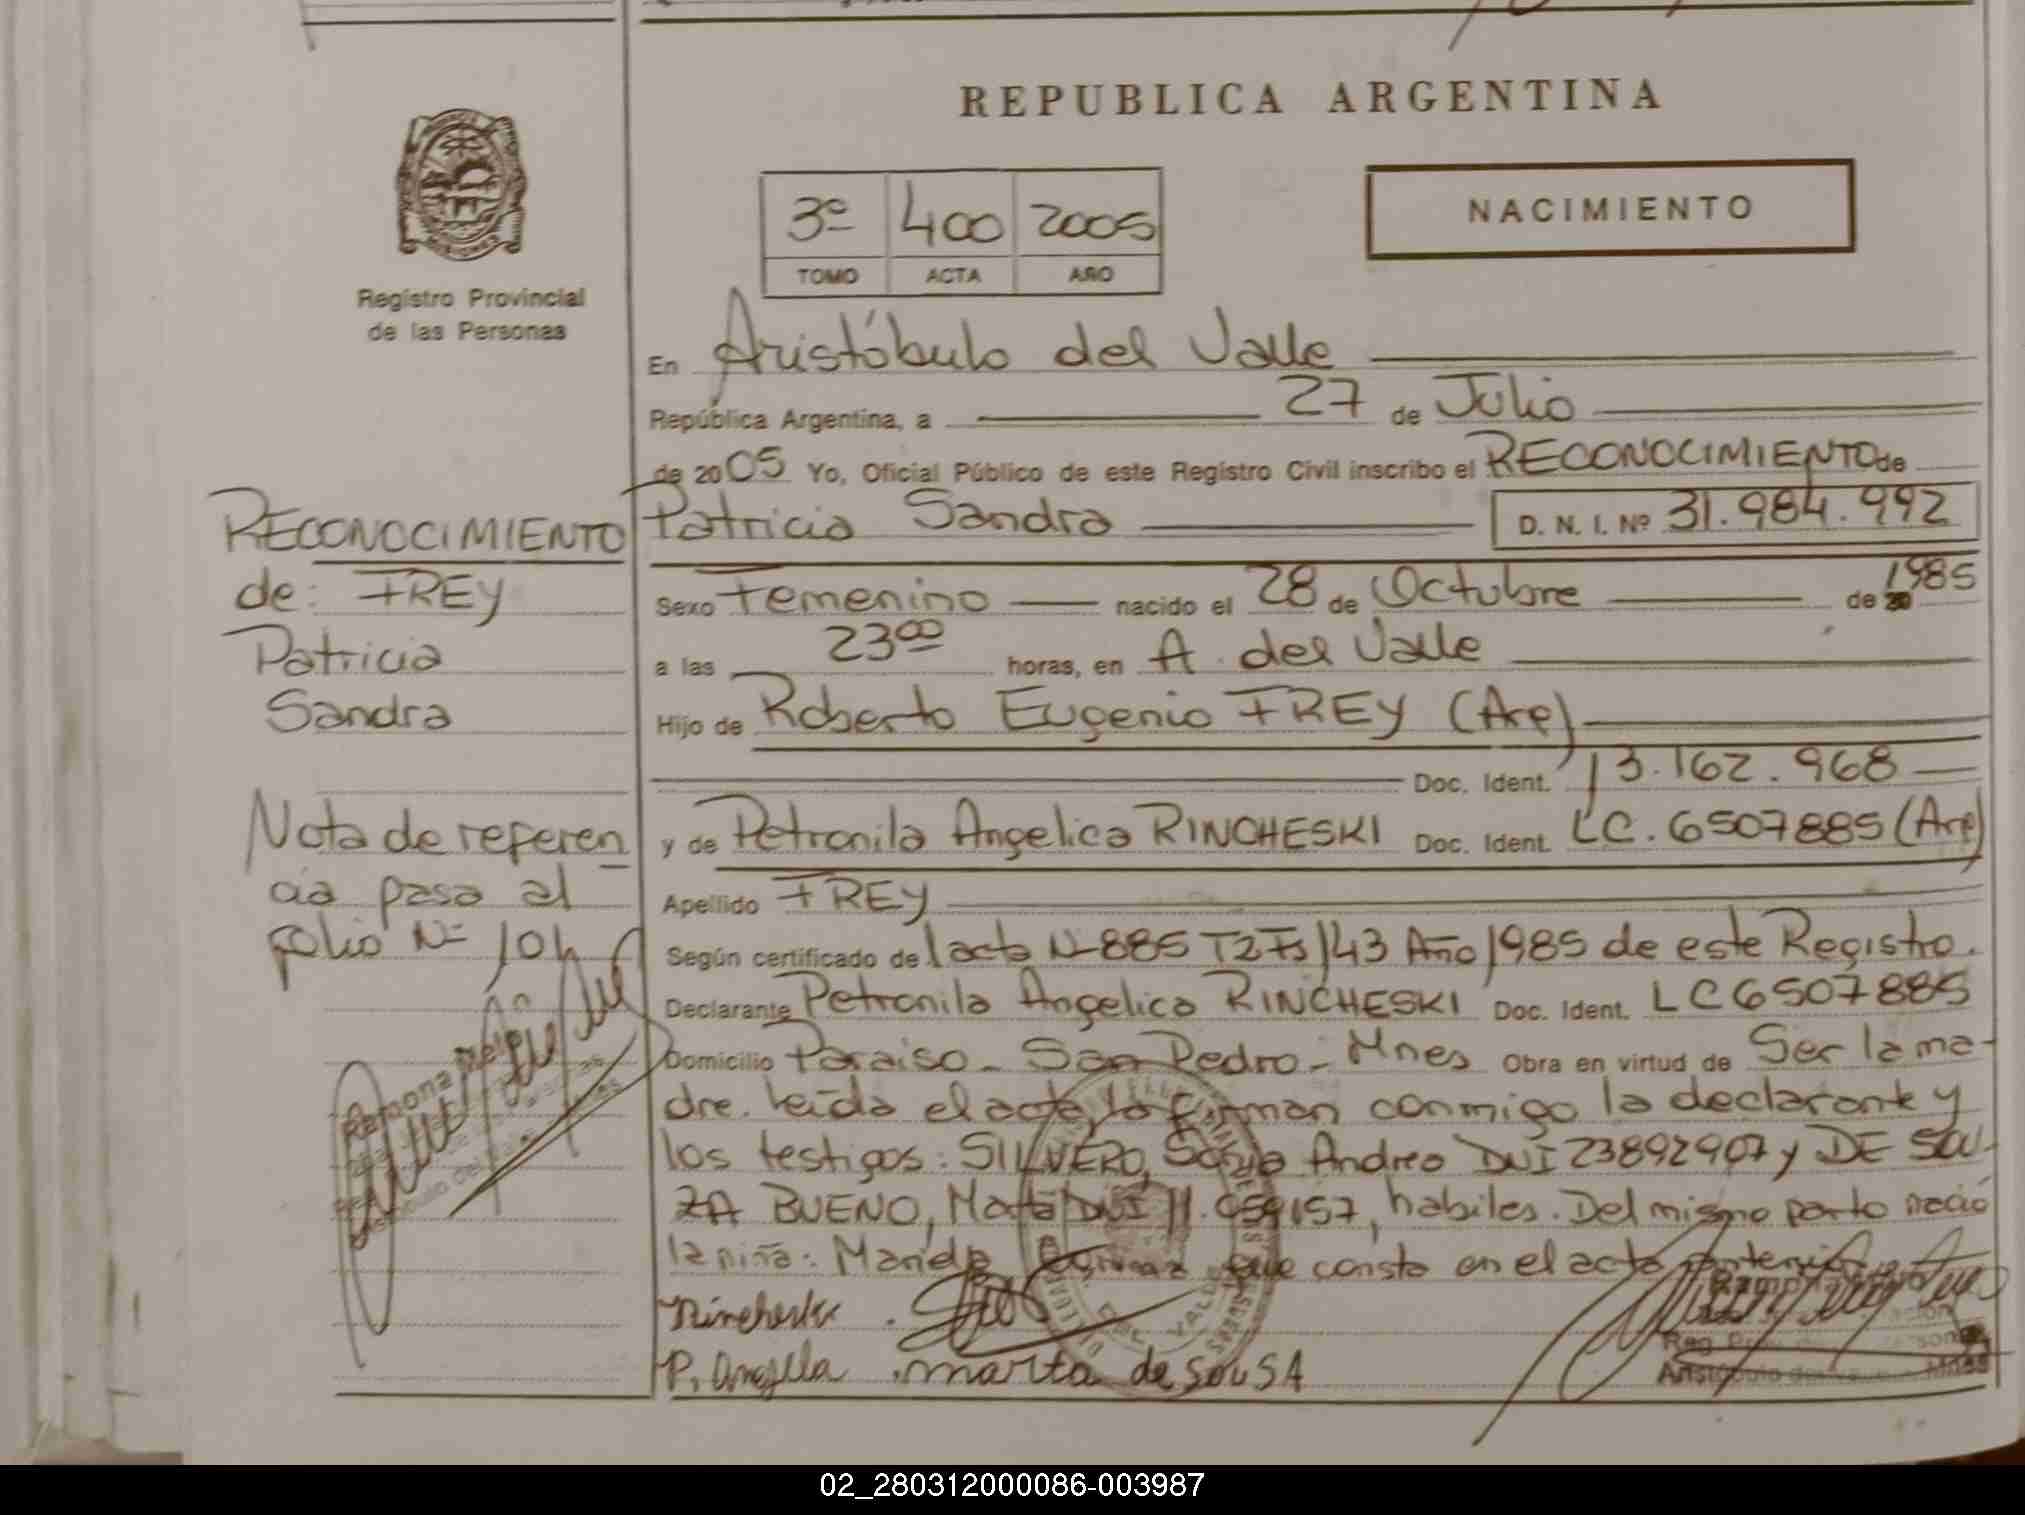 REPUBLICA ARGENTINA
3º 400 2005
TOMO ACTA AÑO
NACIMIENTO
Registro Provincial
de las Personas
En Aristóbulo del Valle
República Argentina, a 27 de Julio
de 2005 Yo, Oficial Público de este Registro Civil inscribo el RECONOCIMIENTO de
Patricia Sandra D. N. I. Nº 31.984.992
Sexo Femenino nacido el 28 de Octubre de 1985
a las 23 00 horas, en A. del Valle
Hijo de Roberto Eugenio FREY (Arg)
Doc. Ident. 13.162.968
y de Petronila Angelica RINCHESKI Doc. Ident. LC. 6507885 (Arg)
Apellido FREY
Según certificado de acta Nº 885 T2 Fs 143 Año 1985 de este Registro.
Declarante Petronila Angelica RINCHESKI Doc. Ident. LC 6507885
Domicilio Paraiso - San Pedro - Mnes Obra en virtud de Ser la ma-
dre. Leida el acta, la firman conmigo la declarante y
los testigos: SILVERO, Andrea DNI 23892907 y DE SOU-
ZA BUENO, Marta DNI 11.059157, habiles. Del mismo parto nació
la niña: que consta en el acta anterior
Rincheski
P. Angela marta de SouSA
RECONOCIMIENTO
de: FREY
Patricia
Sandra
Nota de referen
cia pasa al
folio Nº 104
Ramona
02_280312000086-003987